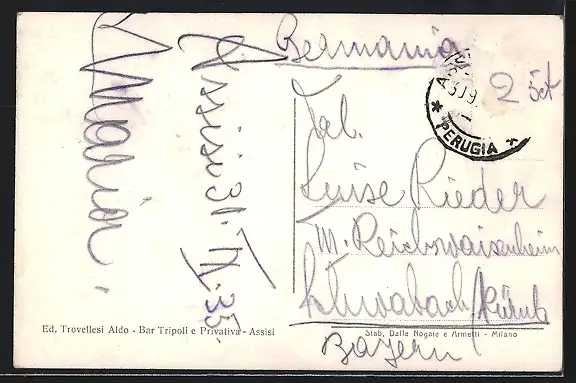 Maria.
Assisi 31.IX.35.
Germania
PERUGIA
Frl.
Luise Rieder
M. Reichswaisenheim
Schwabach/Nürnb
Bayern
Ed. Trovellesi Aldo - Bar Tripoli e Privativa - Assisi
Stab. Dalle Nogare e Armetti - Milano